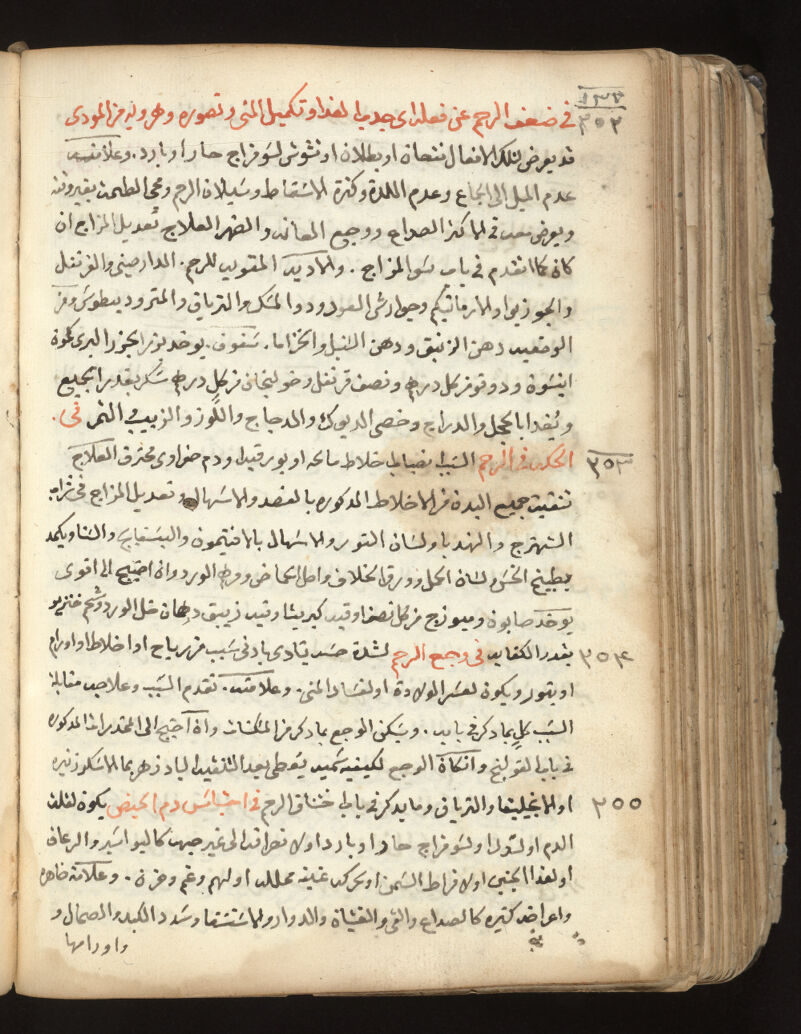 ١٣٣
٣٥٢
في ضعف الرحم عن فعله اى جذب الغذا وتكميل المنى وتصوره وهروبه من الموذى
قد يعرض لتلك الافعال نقصان او بطلان او تشوش لسو مزاج حار او بارد. وعلامته
عدم الميل الى الجماع وعدم اللذة وكثرة الاسقاط وسيلان الرحم ومجى الطمث بغير وقته
ويعرض معه فى الاكثر الصداع ووجع المعانه والظهر العلاج تعديل المزاج ان
كان كما تقدم فى باب سو المزاج. والادوية المقوية للرحم. الدارصينى والقرنفل
والجوزبوا والانار مشكم وجوارش العود ودوا المسك والترياق والمثروديطوس ومن
الوضعيه دهن الزنبق ودهن السنبل والخزاما. سفوف. يوخذ بزر الجزر البرى كمون
انيسون ودوقو من كل درهم ونصف قرنفل وخولنجان من كل درهم سكر بقدر الجميع
ويغدا بالحجل والدراج وخصى الديوك والدجاج واللوز والزبيب والتمر فى.
٣٥٣
الحكه فى الرحم السبب انصباب اخلاط مالحه او بورقيه او دم صفراوى محترق العلاج
تنقية جميع البدن من الاخلاط المذكوره بالفصد والاسهال وتعديل المزاج فى شراب
الشهترج والهندبا ولسان الثور والاسهال بالافتيمون والبسفايج والسنا ويكمد
بطبيخ الخس ولسان الحمل وورق الخلاف واصل الحماض وورق الورد وان احتيج الى اقوى
يوخذ صابون وميوزج من كل نصف اوقيه كبريت اوقيه زيبق درهمان خل الورد وشحم خنزير
٣٥٤
بقدر الكفايه فى وجع الرحم لشدة حسه يتاذى بادنى سبب من رياح او اخلاط او اورام
او بثور ويكون لعسر الولادة او لفساد المنى. وعلامته. تقدم السبب وعلاجه مقابلة
السبب كل بما ذكر فى بابه. ويسكن الوجع بما ذكر من المسكنات وان احتيج الى المخدرات المذكوره
فى باب القولنج وان كان الوجع لكيفيه سميه يعطى بعد التنقيه البادزهر بما الاسكورنيره
٣٥٥
او الانجيليقا والترياق وما يذكر فى باب خناق الرحم فى احتباس دم الحيض يكون لقلة
الدم او لسو مزاج حار او بارد او لانصرافه الى غير جهة كالبواسير والرعاف
او لغذا الجنين او لافراط السمن او لحركه عنيفه محلله او لهم وغم وحزن. وعلامته ظاهره
واعراضه كثيره كالصداع والقى والغشيان والدوار والاستسقا وسدد الكبد والطحال و
واورامها